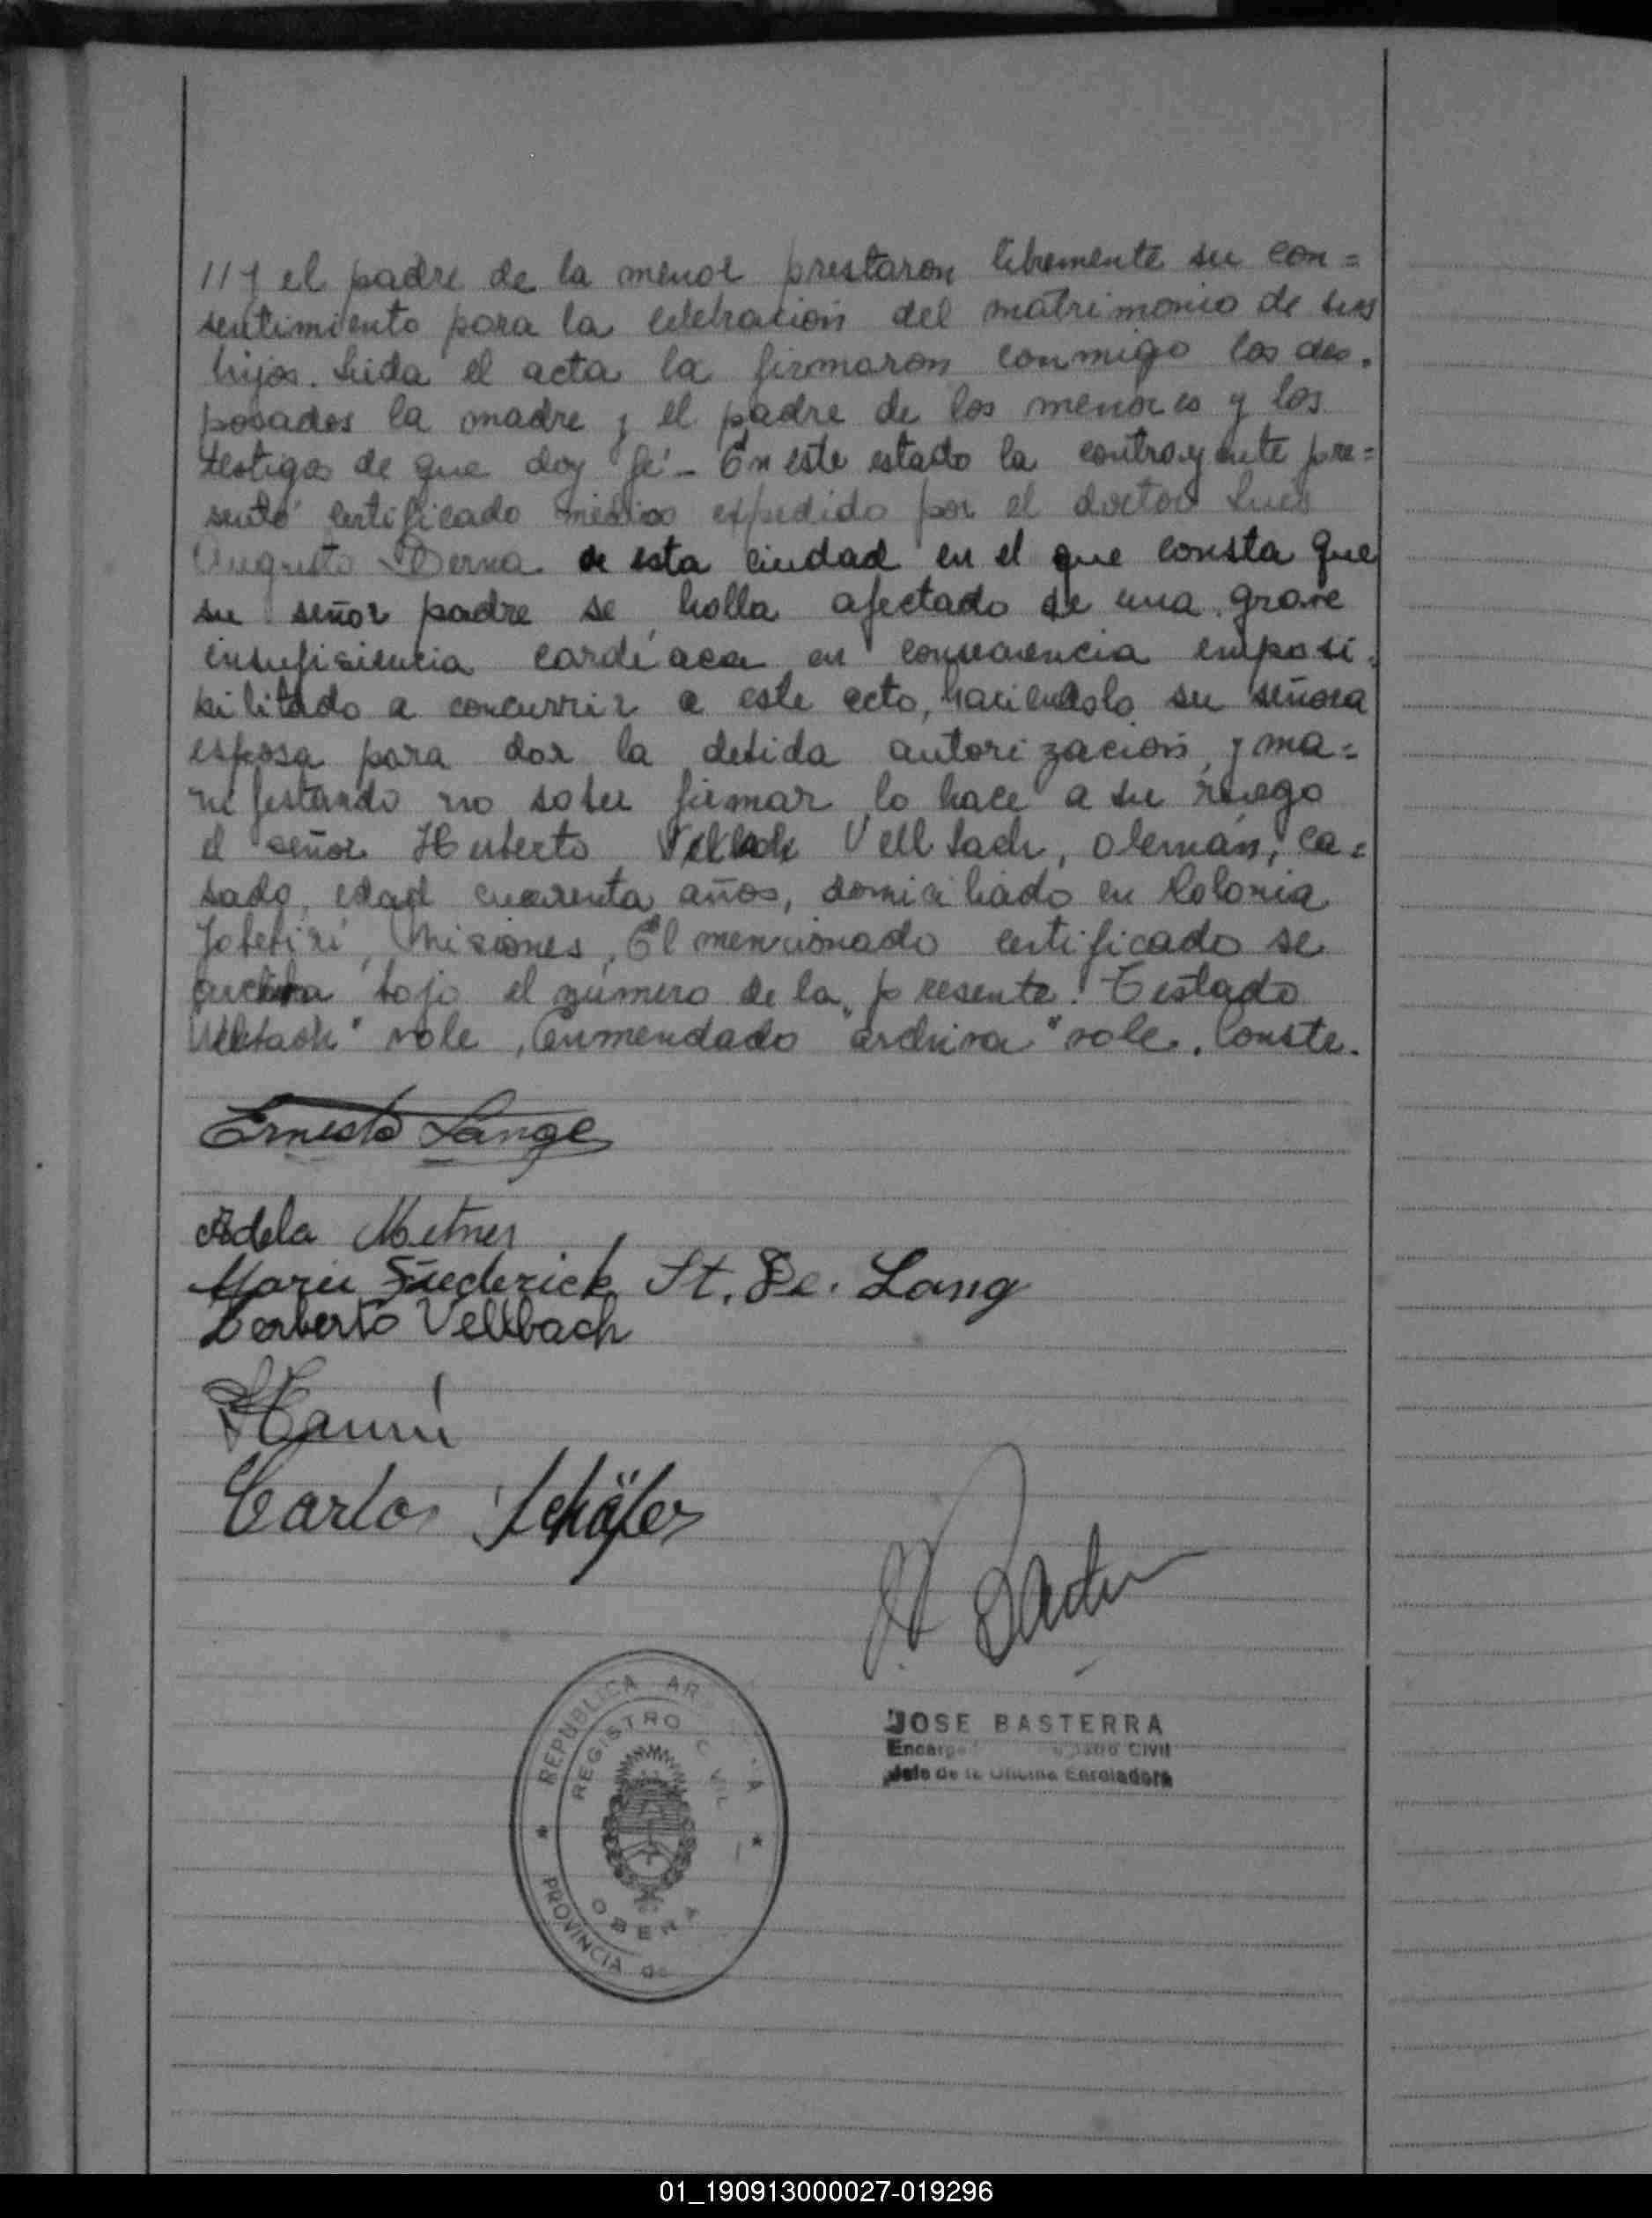 // y el padre de la menor prestaron libremente su con=
sentimiento para la celebración del matrimonio de sus
hijos. Leida el acta la firmaron conmigo los des.
posados la madre y el padre de los menores y los
testigos de que doy fé.- En este estado la contrayente pre=
sentó certificado médico expedido por el doctor Luis
Augusto Derna de esta ciudad en el que consta que
su señor padre se halla afectado de una grave
insufisiencia cardíaca en consecuencia imposi.
bilitado a concurrir a este acto, haciendolo su señora
esposa para dar la debida autorización, y ma=
nifestando no saber firmar lo hace a su ruego
el señor Herberto Vellbach, alemán, ca=
sado, edad cuarenta años, domiciliado en Colonia
Yabebirí, Misiones, El mencionado certificado se
archiva bajo el número de la presente. Testado
" vale, Enmendado "archiva" vale. Conste.
Ernesto Lange
Adela Metner
Marie Frederick St. De. Lang
Herberto Vellbach
Carlos Schäfer
JOSE BASTERRA
Encarg Civil
Jefe de la Oficina Enroladora
REPUBLICA AR A
REGISTRO C VIL
OBERA
PROVINCIA de
01_190913000027-019296